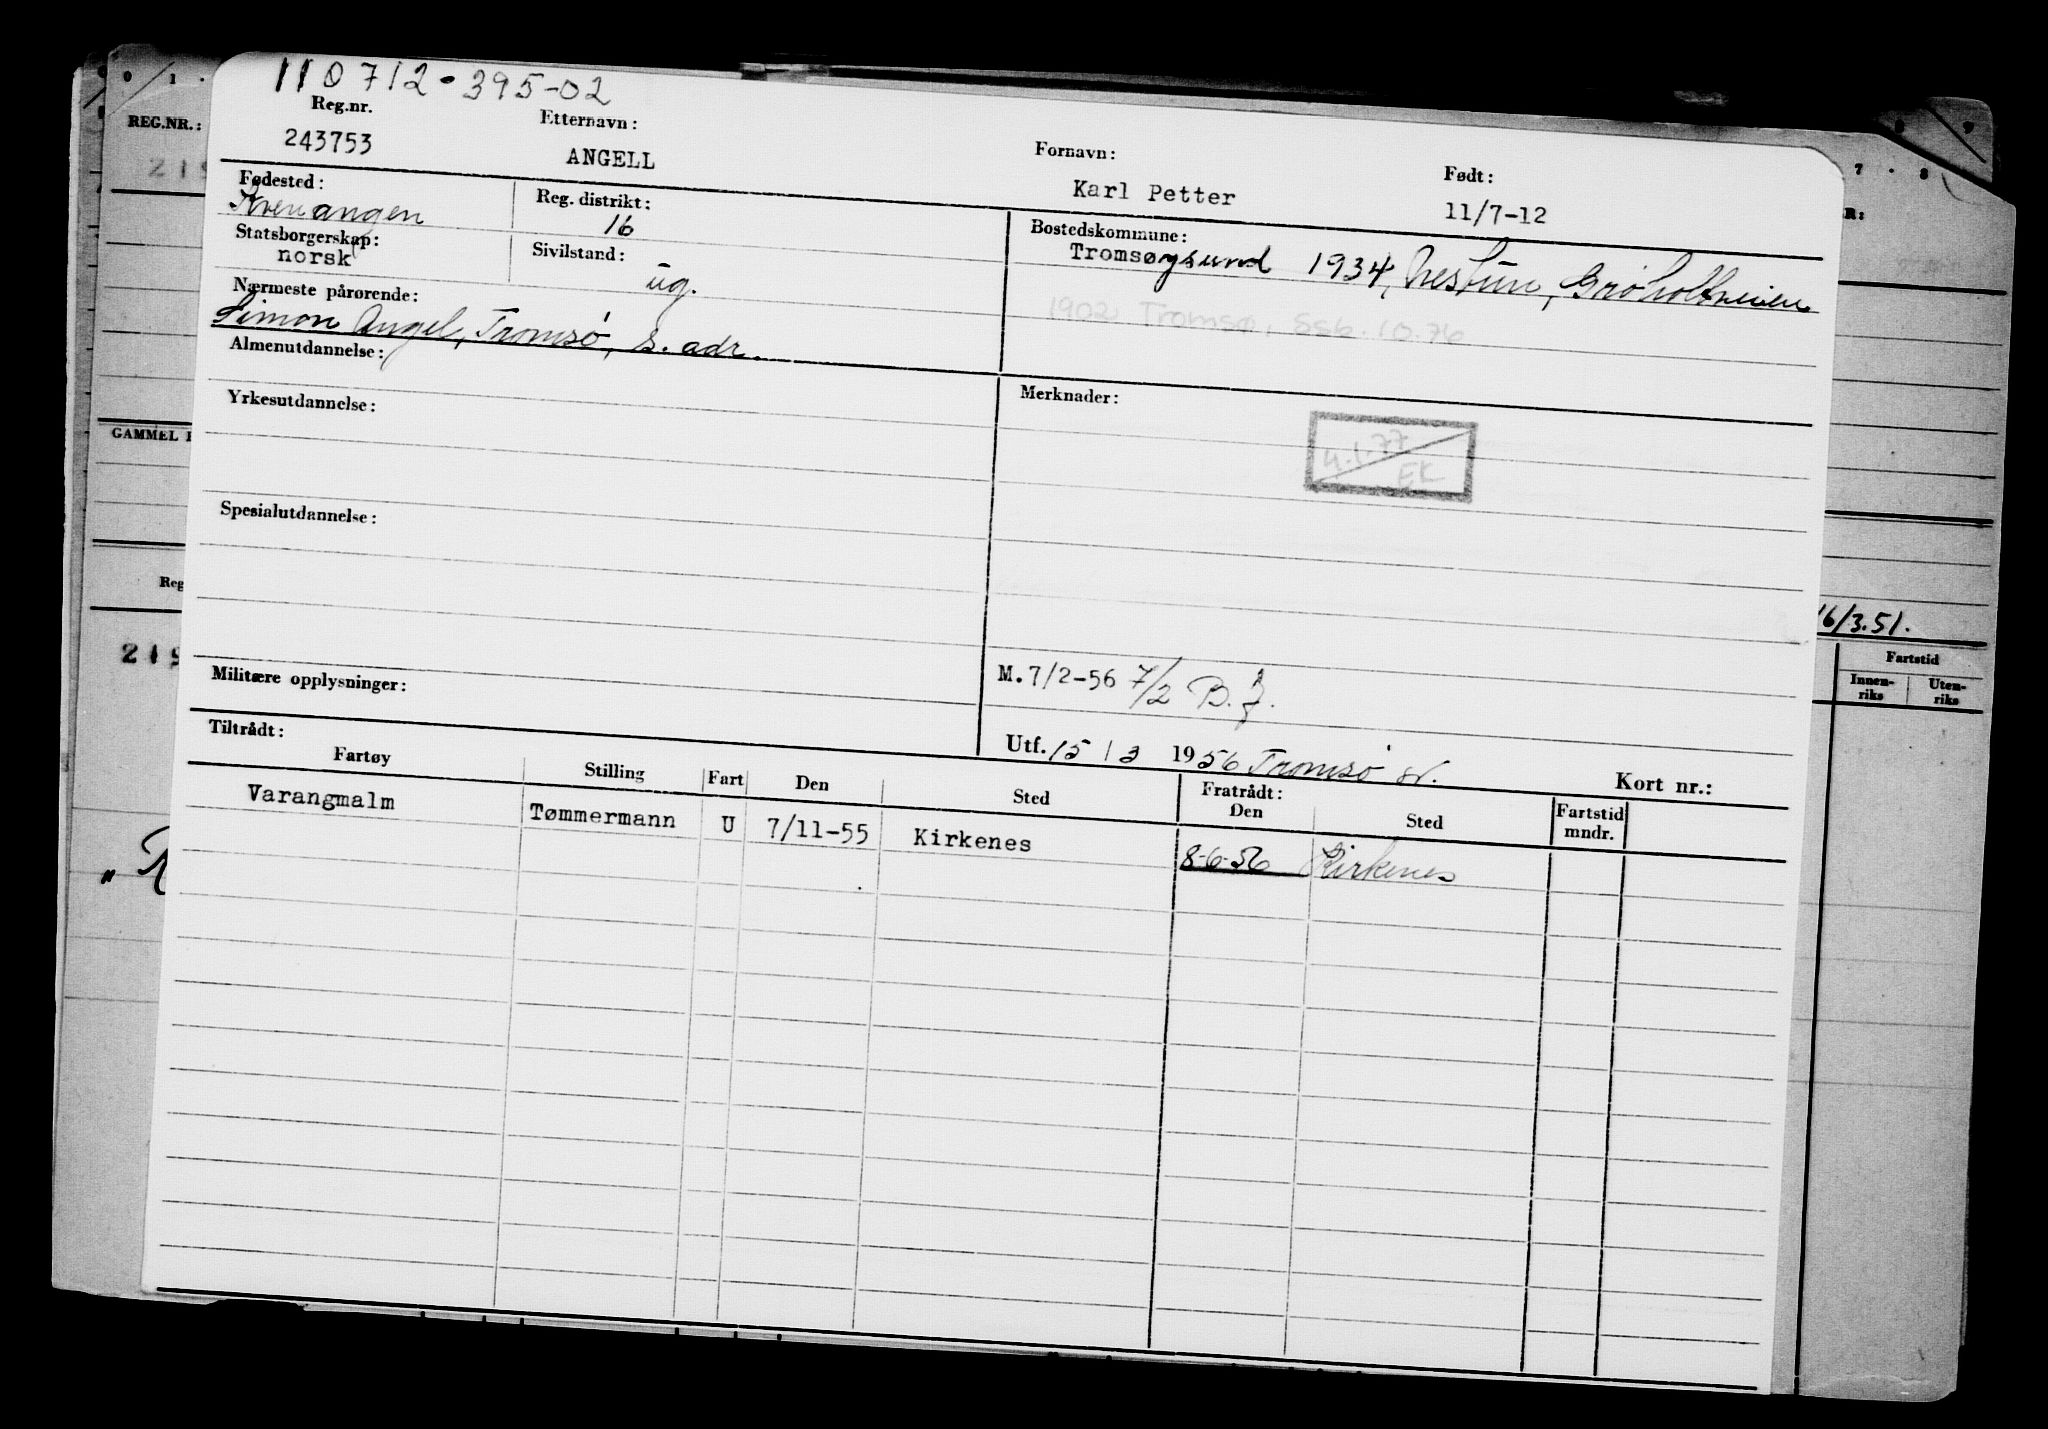 110712·395-02
Reg.nr. Etternavn: Fornavn: Født:
243753 ANGELL Karl Petter 11/7-12
Fødested: Reg. distrikt: Bostedskommune:
Kvenangen 16 Tromsøysund 1934, Nestun, Grøholtveien
Statsborgerskap: Sivilstand:
norsk ug.
1902 Tromsø, Ssb. 10.76
Nærmeste pårørende:
Simon Angel, Tromsø, s. adr.
Almenutdannelse:
Merknader:
Yrkesutdannelse:
4.1.77
EK
Spesialutdannelse:
Militære opplysninger:
M.7/2-56 7/2 B.
Utf. 15/3 1956 Tromsø Kort nr.:
Tiltrådt: Fratrådt:
Fartøy Stilling Fart Den Sted Den Sted Fartstid mndr.
Varangmalm Tømmermann U 7/11-55 Kirkenes 8-6-56 Kirkenes
REG.NR.:
0 1 ·
219
GAMMEL
Reg
219
"
9
7 · 8
R:
16/3.51.
Fartstid
Innen-riks Uten-riks